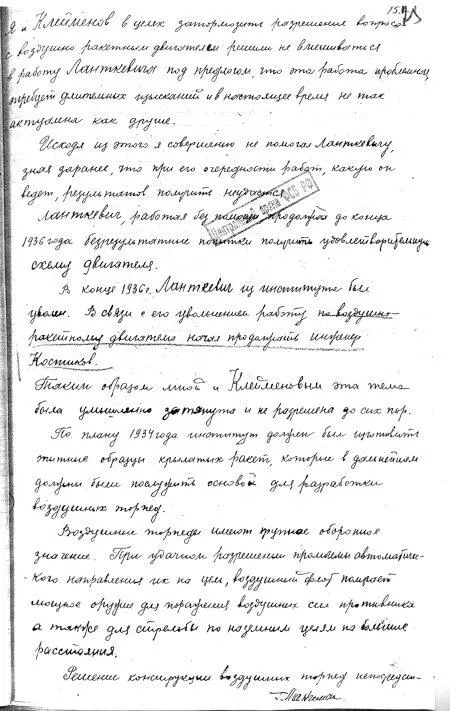 15. 
Я и Клейменов в целях затормозить разрешение вопроса
с воздушно ракетным двигателем решили не вмешиваться
в работу Ланткевича под предлогом, что эта работа проблемная,
требует длительных изысканий и в настоящее время не так
актуальна как другие.
Исходя из этого я совершенно не помогал Ланткевичу,
зная заранее, что при его очередности работ, какую он
ведет, результатов получить неудастся.
Ланткевич, работая без помощи продолжал до конца
1936 года безрезультатные попытки получить удовлетворительную
схему двигателя.
Центральный архив ФСБ РФ
В конце 1936 г. Ланткевич из института был
уволен. В связи с его увольнением работу по воздушно-
ракетному двигателю начал продолжать инженер
Костиков.
Таким образом мной и Клейменовым эта тема
была умышленно затянута и не разрешена до сих пор.
По плану 1934 года институт должен был изготовить
опытные образцы крылатых ракет, которые в дальнейшем
должны были послужить основой для разработки
воздушных торпед.
Воздушные торпеды имеют крупное оборонное
значение. При удачном разрешении проблемы автоматиче-
ского направления их на цели, воздушный флот получает
мощное оружие для поражения воздушных сил противника
а также для стрельбы по наземным целям на большие
расстояния.
Решение конструкции воздушных торпед непосредст-